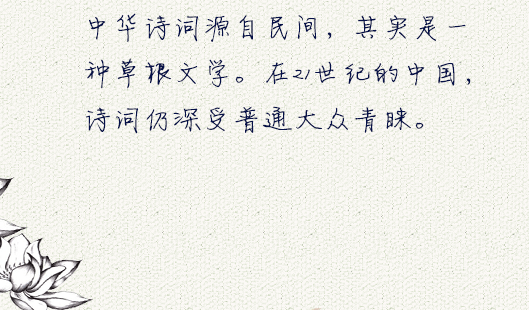 中华诗词源自民间，其实是一
种草根文学。在21世纪的中国，
诗词仍深受普通大众青睐。